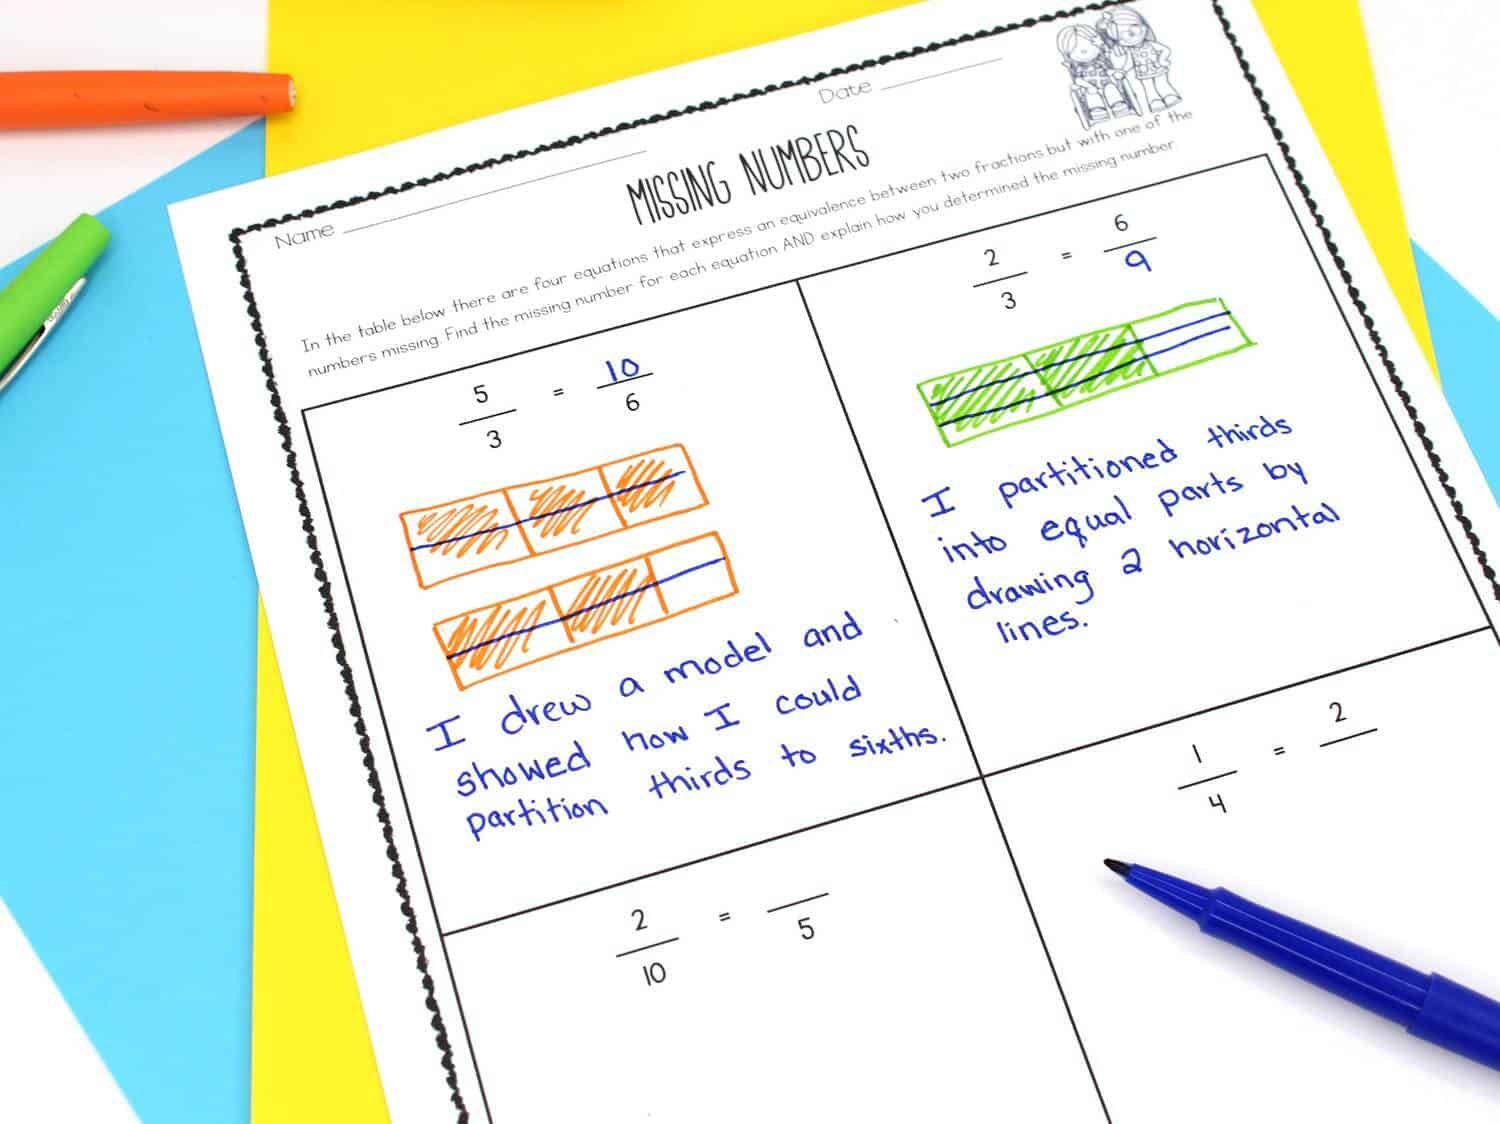 Name
Date
MISSING NUMBERS
In the table below there are four equations that express an equivalence between two fractions but with one of the
numbers missing. Find the missing number for each equation AND explain how you determined the missing number.
5/3 = 10/6
I drew a model and
showed how I could
partition thirds to sixths.
2/3 = 6/9
I partitioned thirds
into equal parts by
drawing 2 horizontal
lines.
2/10 = /5
1/4 = 2/